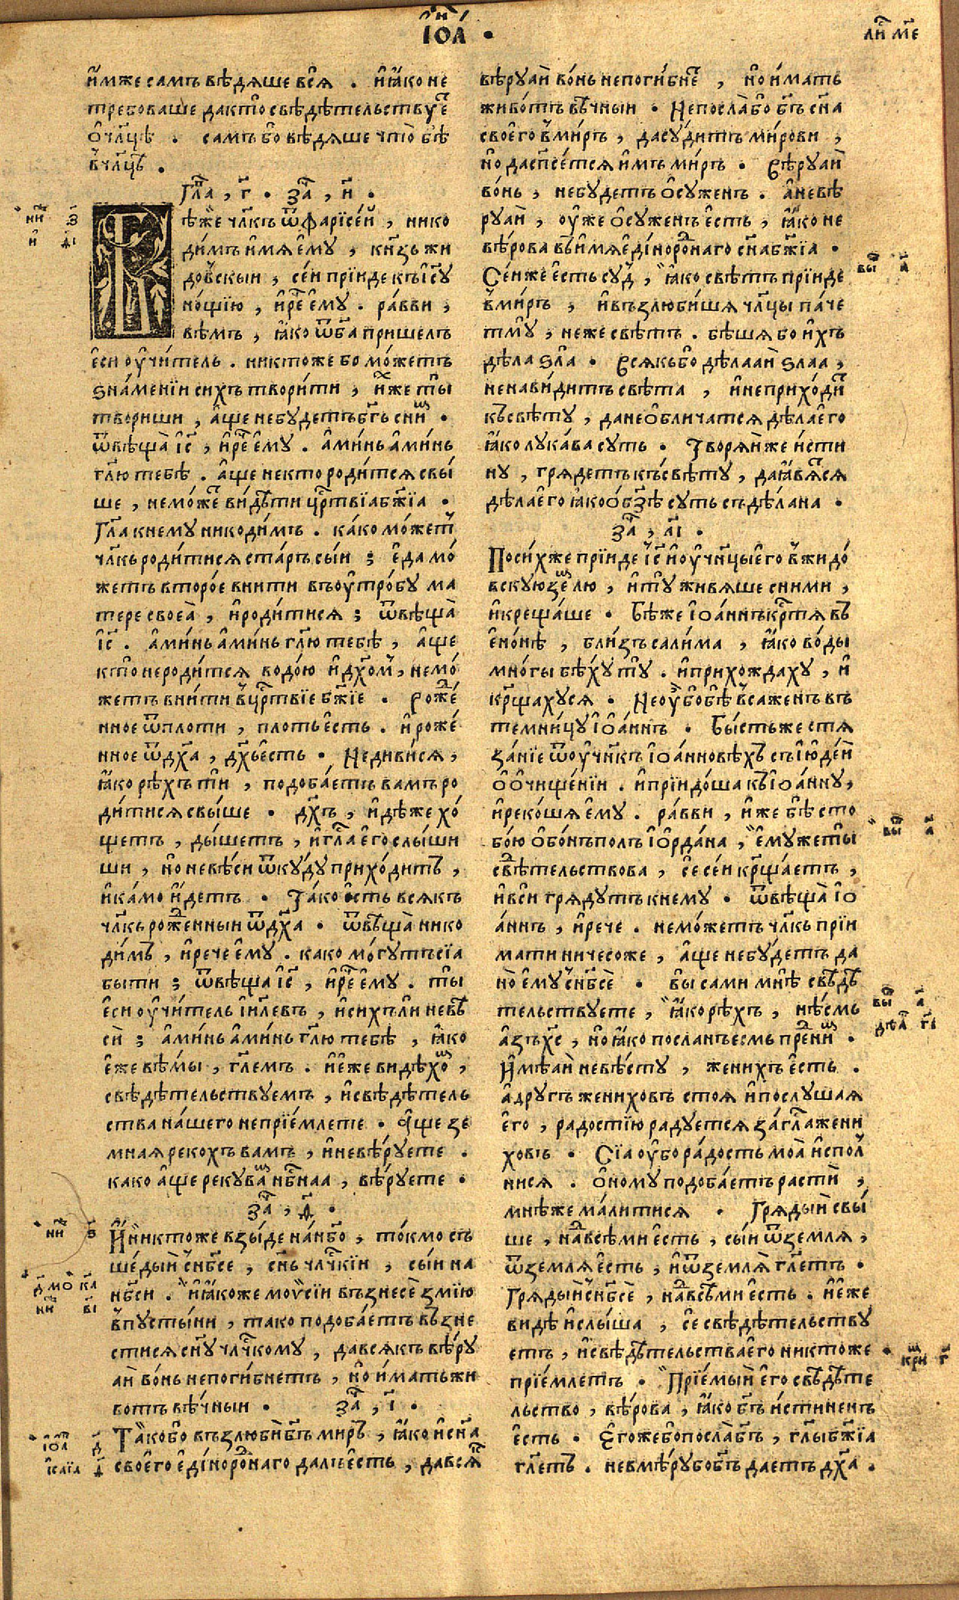 І҆ѡ҃а .
ли м҃е
и҆мже самъ вѣдяше вся . и҆ ꙗ҆ко не
требоваше да кто свѣдѣтельствуе
о҆ чл҃цѣ . самъ бо вѣдяше что бѣ
в чл҃цѣ .
Гла , г҃ . за , и҃ .
Бѣже чл҃къ ѿ фарїсеи , нико
димъ и҆мя е҆му , кн҃зь жи
довскыи , сеи прїиде къ і҆су
нощїю , и҆ рече е҆му . равви ,
вѣмъ , ꙗ҆ко ѿ б҃а пришелъ
е҆си оу҆читель . никтоже бо можетъ
ѕнаменїи сихъ творити , ꙗ҆же ты
твориши , а҆ще не будетъ б҃гъ с ним .
ѿвѣща і҆с , и҆ рече е҆му . а҆минь а҆минь
гл҃ю тебѣ . а҆ще не кто родится свы
ше , не може видѣти цр҃твїа б҃жїа .
Гл҃а к нему никодимъ . како может
чл҃къ родитися старъ сыи ; е҆да мо
жетъ второе внити въ оу҆тробу ма
тере своеа , и҆ родитися ; ѿвѣща
і҆с . а҆минь а҆минь гл҃ю тебѣ , а҆ще
кто не родится водою и҆ дх҃ом , не мо
жетъ внити в цр҃твїе б҃жїе . Роже
нное ѿ плоти , плоть есть . и҆ роже
нное ѿ дх҃а , дх҃ъ есть . Не дивися ,
ꙗ҆ко рѣхъ ти , подобаетъ вамъ ро
дитися свыше . дх҃ъ , и҆дѣже хо
щетъ , дышетъ , и҆ гла е҆го слыши
ши , но не вѣси ѿкуду приходитъ ,
и҆ камо и҆детъ . Тако есть всякъ
чл҃къ рожденныи ѿ дх҃а . ѿвѣща нико
димъ , и҆ рече е҆му . како могутъ сїа
быти ; ѿвѣща і҆с , и҆ рече е҆му . ты
е҆си оу҆читель і҆и҃левъ , и҆ сихъ ли невѣ
си ; а҆минь а҆минь гл҃ю тебѣ , ꙗ҆ко
е҆же вѣмы , гл҃емъ . и҆ е҆же видѣхом ,
свѣдѣтельствуемъ , и҆ свѣдѣтель
ства нашего не прїемлете . А҆ще зе
мная рекохъ вамъ , и҆ не вѣруете .
како а҆ще реку вам нб҃наа , вѣруете .
за , д҃ .
И҆ никтоже взыде на нб҃о , токмо съ
шедыи с нб҃се , сн҃ъ чл҃чкїи , сыи на
нб҃си . и҆ ꙗ҆коже моѵсїи възнесе змїю
в пустыни , тако подобаетъ възне
стися сн҃у чл҃чкому , да всякъ вѣру
аи во нь не погибнетъ , но и҆мать жи
вотъ вѣчныи . за , і҃ .
Тако бо възлюби б҃гъ миръ , ꙗ҆ко и҆ сн҃а
своего е҆дїнороднаго далъ есть , да вся
вѣруаи во нь не погибне , но и҆мать
животъ вѣчныи . Не посла бо б҃гъ сн҃а
своего в миръ , да судитъ мирови ,
но да спсется и҆мъ миръ . Вѣруаи
во нь , не будетъ о҆суженъ . а҆ не вѣ
руаи , оу҆же о҆суженъ есть , ꙗ҆ко не
вѣрова въ и҆мя е҆дїнороднаго сн҃а б҃жїа .
Се и҆ же есть суд , ꙗ҆ко свѣтъ прїиде
в миръ , и҆ възлюбишя чл҃цы паче
тму , неже свѣтъ . бѣшя бо и҆хъ
дѣла ѕла . Всякъ бо дѣлааи ѕлаа ,
ненавидитъ свѣта , и҆ не приходи
къ свѣту , да не о҆бличатся дѣла е҆го
ꙗ҆ко лукава суть . Творяи же и҆сти
ну , грядетъ къ свѣту , да ꙗ҆вятся
дѣла е҆го ꙗ҆ко о҆ б҃зѣ суть съдѣлана .
за , а҃і .
По сихже прїиде і҆с и҆ оу҆чн҃цы е҆го в жидо
вскую землю , и҆ ту живяше с ними ,
и҆ крещаше . Бѣ же і҆оаннъ кр҃тя въ
е҆нонѣ , близъ салима , ꙗ҆ко воды
многы бѣху ту . и҆ прихождаху , и҆
кр҃щахуся . Не оу҆ бо бѣ всаженъ въ
темницу і҆оаннъ . Бысть же стя
занїе ѿ оу҆чн҃къ і҆оанновѣхъ съ і҆юдеи
о҆ о҆чищенїи . и҆ прїидоша къ і҆оанну ,
и҆ рекошя е҆му . равви , и҆же бѣ с то
бою о҆б онъ полъ і҆ордана , е҆муже ты
свѣтельствова , се сеи кр҃щаетъ ,
и҆ вси грядутъ к нему . ѿвѣща і҆о
аннъ , и҆ рече . не можетъ чл҃къ прїи
мати ничесоже , а҆ще не будетъ да
но е҆му с нб҃се . вы сами мнѣ свѣдѣ
тельствуете , ꙗ҆ко рѣхъ , нѣсмь
азъ х҃с , но ꙗ҆ко посланъ есмь пред ним .
И҆мѣаи невѣсту , женихъ есть .
а҆ другъ жениховъ стоя и҆ послушая
е҆го , радостїю радуется за гла жени
ховъ . Сїа оу҆бо радость моа и҆спол
нися . о҆ному подобаетъ расти ,
мнѣже малитися . Грядыи свы
ше , над всѣми есть , сыи ѿ земля ,
ѿ земля есть , и҆ ѿ земля гл҃етъ .
Грядыи с нб҃се , над всѣми есть . и҆ е҆же
видѣ и҆ слыша , се свѣдѣтельству
етъ , и҆ свѣдѣтельства е҆го никтоже
прїемлетъ . Прїемыи е҆го свѣдѣте
льство , вѣрова , ꙗ҆ко б҃гъ и҆стиненъ
есть . Е҆гоже бо посла б҃гъ , гл҃ы б҃жїа
гл҃етъ . не в мѣру бо б҃гъ даетъ дх҃а .